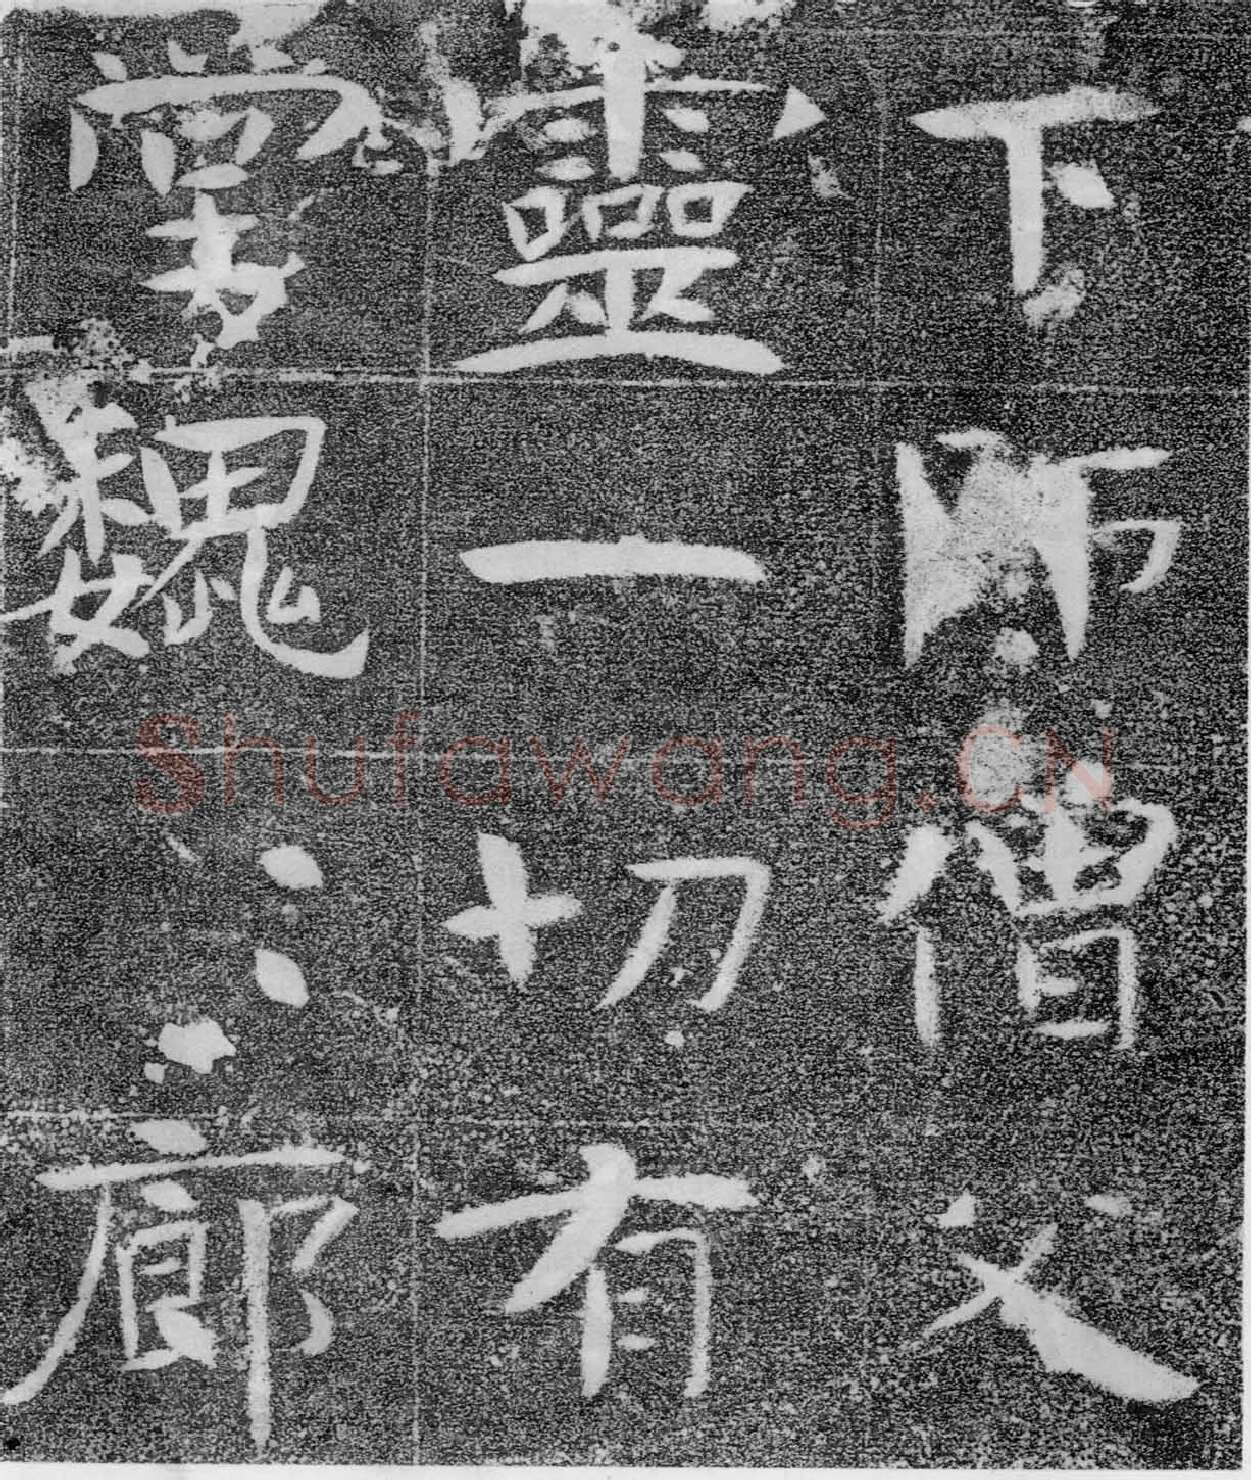 下師僧父
靈一切有
魏〻廓
Shufawang.CN